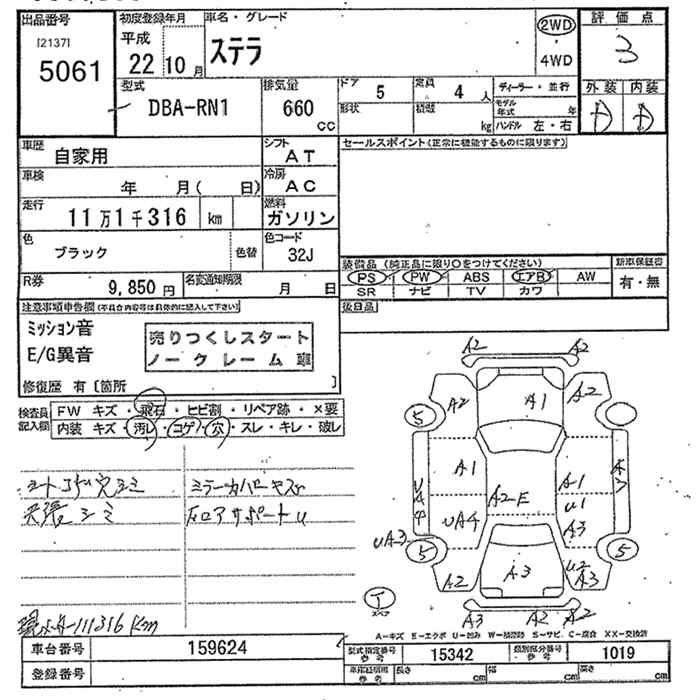 出品番号
[2137]
5061
初度登録年月
平成
22 10月
車名・グレード
ステラ
2WD
4WD
評価点
3
外装 内装
A A
型式
DBA-RN1
排気量
660
cc
ドア
5
定員
4人
形状
積載
kg
ディーラー・並行
モデル年式 年
ハンドル 左・右
車歴
自家用
シフト
AT
セールスポイント(正常に機能するものに限ります)
車検
年 月( 日)
冷房
AC
走行
11万1千316 km
燃料
ガソリン
色
ブラック
色替
色コード
32J
R券
9,850円
名変通知期限
月 日
装備品(純正品に限り○をつけてください)
新車保証書
PS PW ABS エアB AW
SR ナビ TV カワ
有・無
後日品
注意事項申告欄(不具合内容等は具体的に記入して下さい)
ミッション音
E/G異音
売りつくしスタート
ノークレーム車
修復歴 有〔箇所 〕
検査員記入欄
FW キズ・飛石・ヒビ割・リペア跡・×要
内装 キズ・汚れ・コゲ・穴・スレ・キレ・破レ
シートコゲ穴シミ
天張シミ
ミラーカバーキズ
111316 Km
A2 A2
A2 A2
5
A1
A1 A1
A2E
U1
UA4 A3
UA3
5 5
A2 A3 U2
A3
A3 A2 A2
スペア
A－キズ E－エクボ U－凹み W－補修跡 S－サビ C－腐食 XX－交換済
車台番号
159624
登録番号
型式指定番号
参考
15342
類別区分番号
参考
1019
車庫証明用
参考
長さ cm
幅 cm
高さ cm